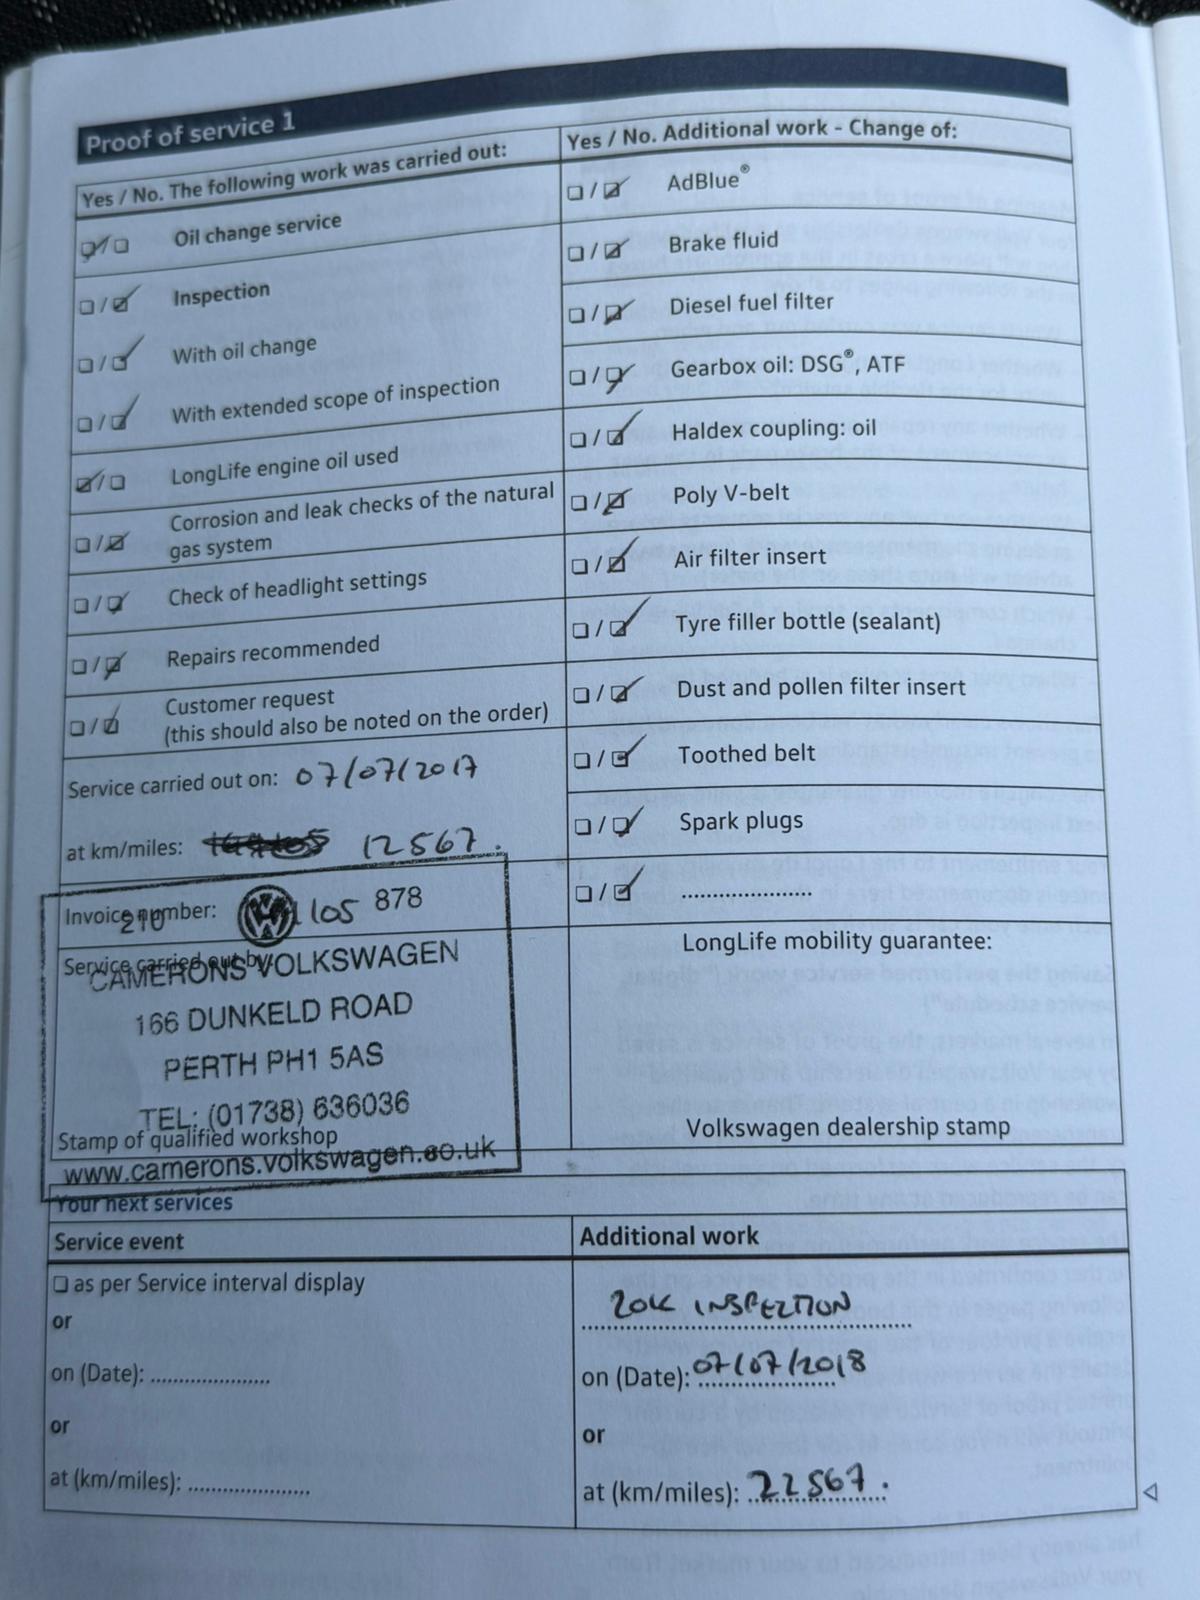 Proof of service 1
Yes / No. The following work was carried out:
Oil change service
Inspection
With oil change
With extended scope of inspection
LongLife engine oil used
Corrosion and leak checks of the natural
gas system
Check of headlight settings
Repairs recommended
Customer request
(this should also be noted on the order)
Service carried out on: 07/07/2017
at km/miles: 12567.
Invoice number: 210 105 878
Service carried out by:
CAMERONS VOLKSWAGEN
166 DUNKELD ROAD
PERTH PH1 5AS
TEL: (01738) 636036
Stamp of qualified workshop
www.camerons.volkswagen.co.uk
Yes / No. Additional work - Change of:
AdBlue®
Brake fluid
Diesel fuel filter
Gearbox oil: DSG®, ATF
Haldex coupling: oil
Poly V-belt
Air filter insert
Tyre filler bottle (sealant)
Dust and pollen filter insert
Toothed belt
Spark plugs
LongLife mobility guarantee:
Volkswagen dealership stamp
Your next services
Service event
as per Service interval display
or
on (Date): ....................
or
at (km/miles): ....................
Additional work
20K INSPECTION
on (Date): 07/07/2018
or
at (km/miles): 22567.